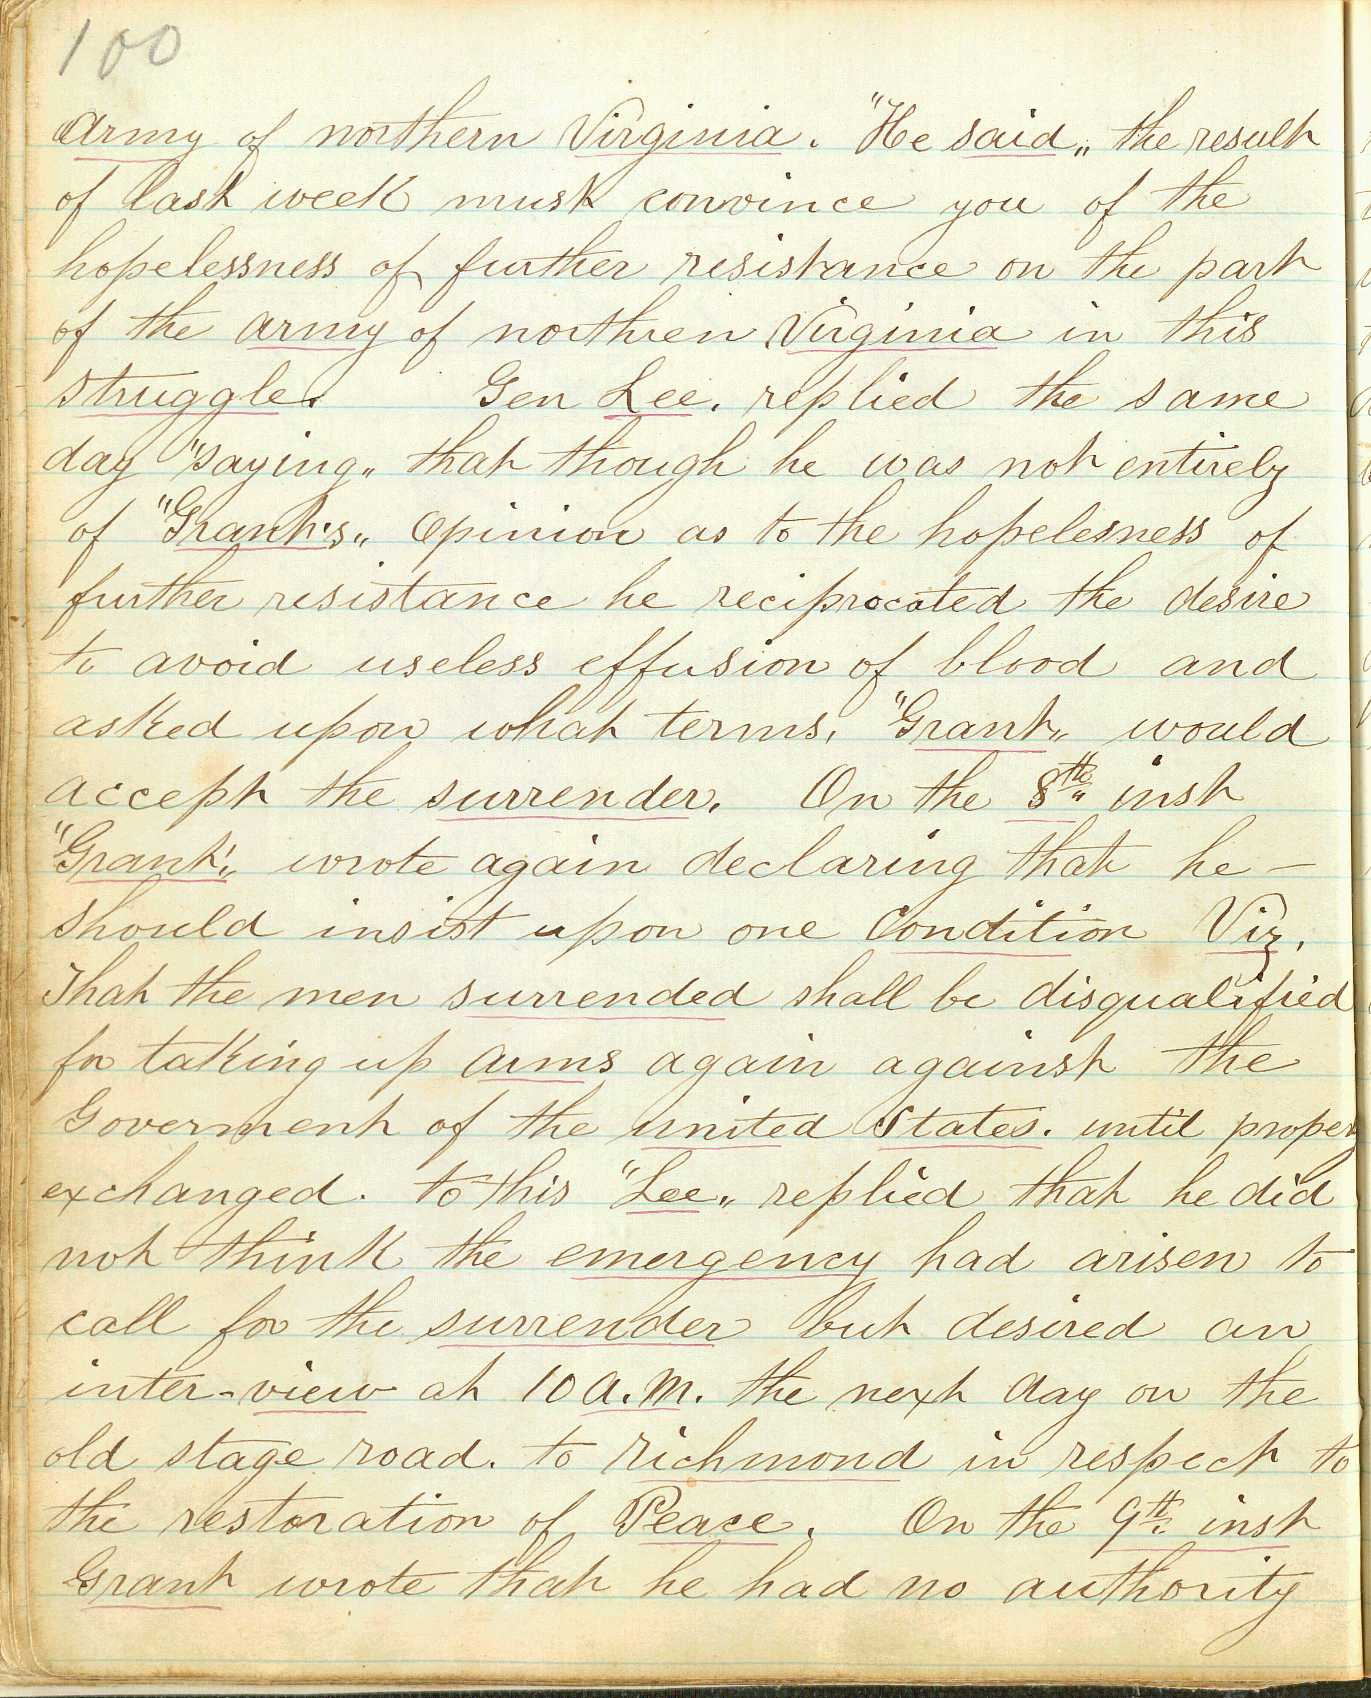 100
Army of northern Virginia. "He said„ the result
of last week must convince you of the
hopelessness of further resistance on the part
of the army of northren Virginia in this
struggle. Gen Lee. replied the same
day "saying„ that though he was not entirely
of "Grant's„ Opinion as to the hopelesness of
further resistance he reciprocated the desire
to avoid useless effusion of blood and
asked upon what terms, "Grant„ would
accept the surrender. On the 8th„ inst
"Grant'„ wrote again declaring that he —
should insist upon one Condition Viz,
That the men surrended shall be disqualified
for taking up arms again against the
Goverment of the united States. until proper
exchanged. to this "Lee„ replied that he did
not think the emergency had arisen to
call for the surrender but desired an
inter-view at 10 A.M. the next day on the
old stage road. to Richmond in respect to
the restoration of Peace. On the 9th. inst
Grant wrote that he had no authority